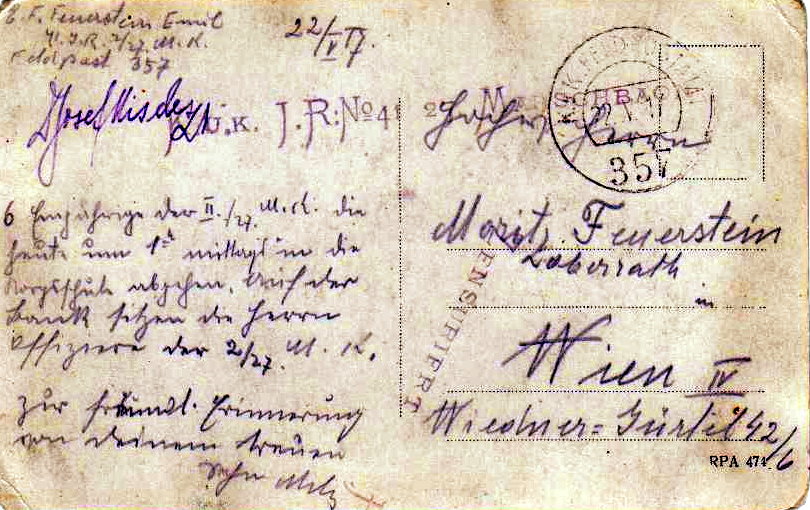 E. F. Feuerstein Emil
K. J. R. 2/27. M. K.
Feldpost 357
22/V 17.
Josef
K.u.K. J.R: No 4
K.u.K. FELDPOSTAMT
22. V. 17
357
Herrn
Moritz Feuerstein
in
Wien IV
Wiedner-Gürtel 42/6
ZENSURIERT
6 Einjährige der II./27. M.K. die
heute um 1h mittags in die
abgehen. Auf der
Bank sitzen die Herrn
Offiziere der 2/27. M. K.
Zur freundl. Erinnerung
von deinem treuen
Sohn
RPA 474